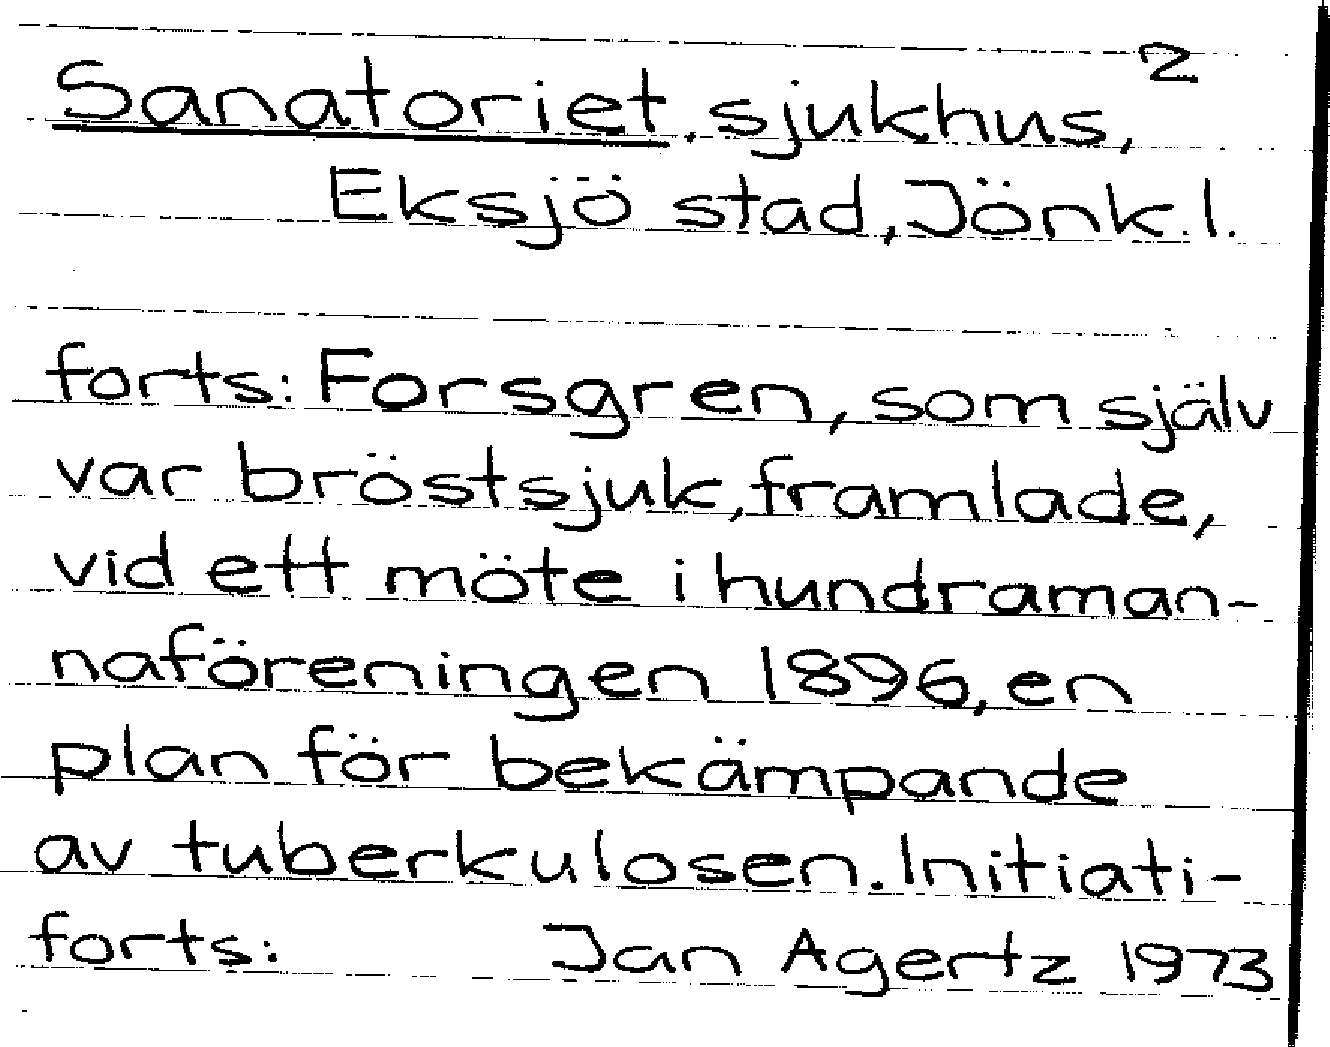 2
Sanatoriet. sjukhus,
Eksjö stad, Jönk.l.
forts: Forsgren, som själv
var bröstsjuk, framlade,
vid ett möte i hundraman-
naföreningen 1896, en
plan för bekämpande
av tuberkulosen. Initiati-
forts: Jan Agertz 1973